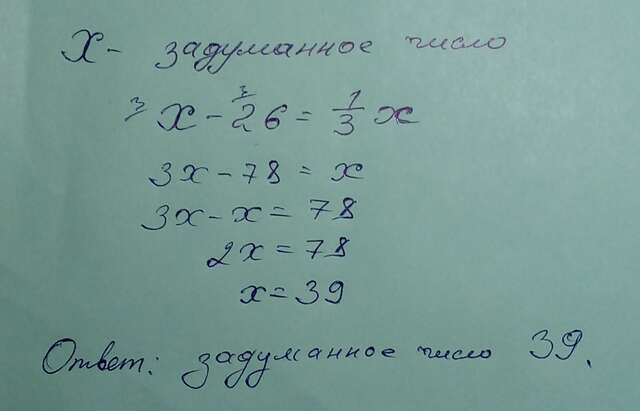 X - задуманное число
³x - ³26 = 1/3 x
3x - 78 = x
3x - x = 78
2x = 78
x = 39
Ответ: задуманное число 39.